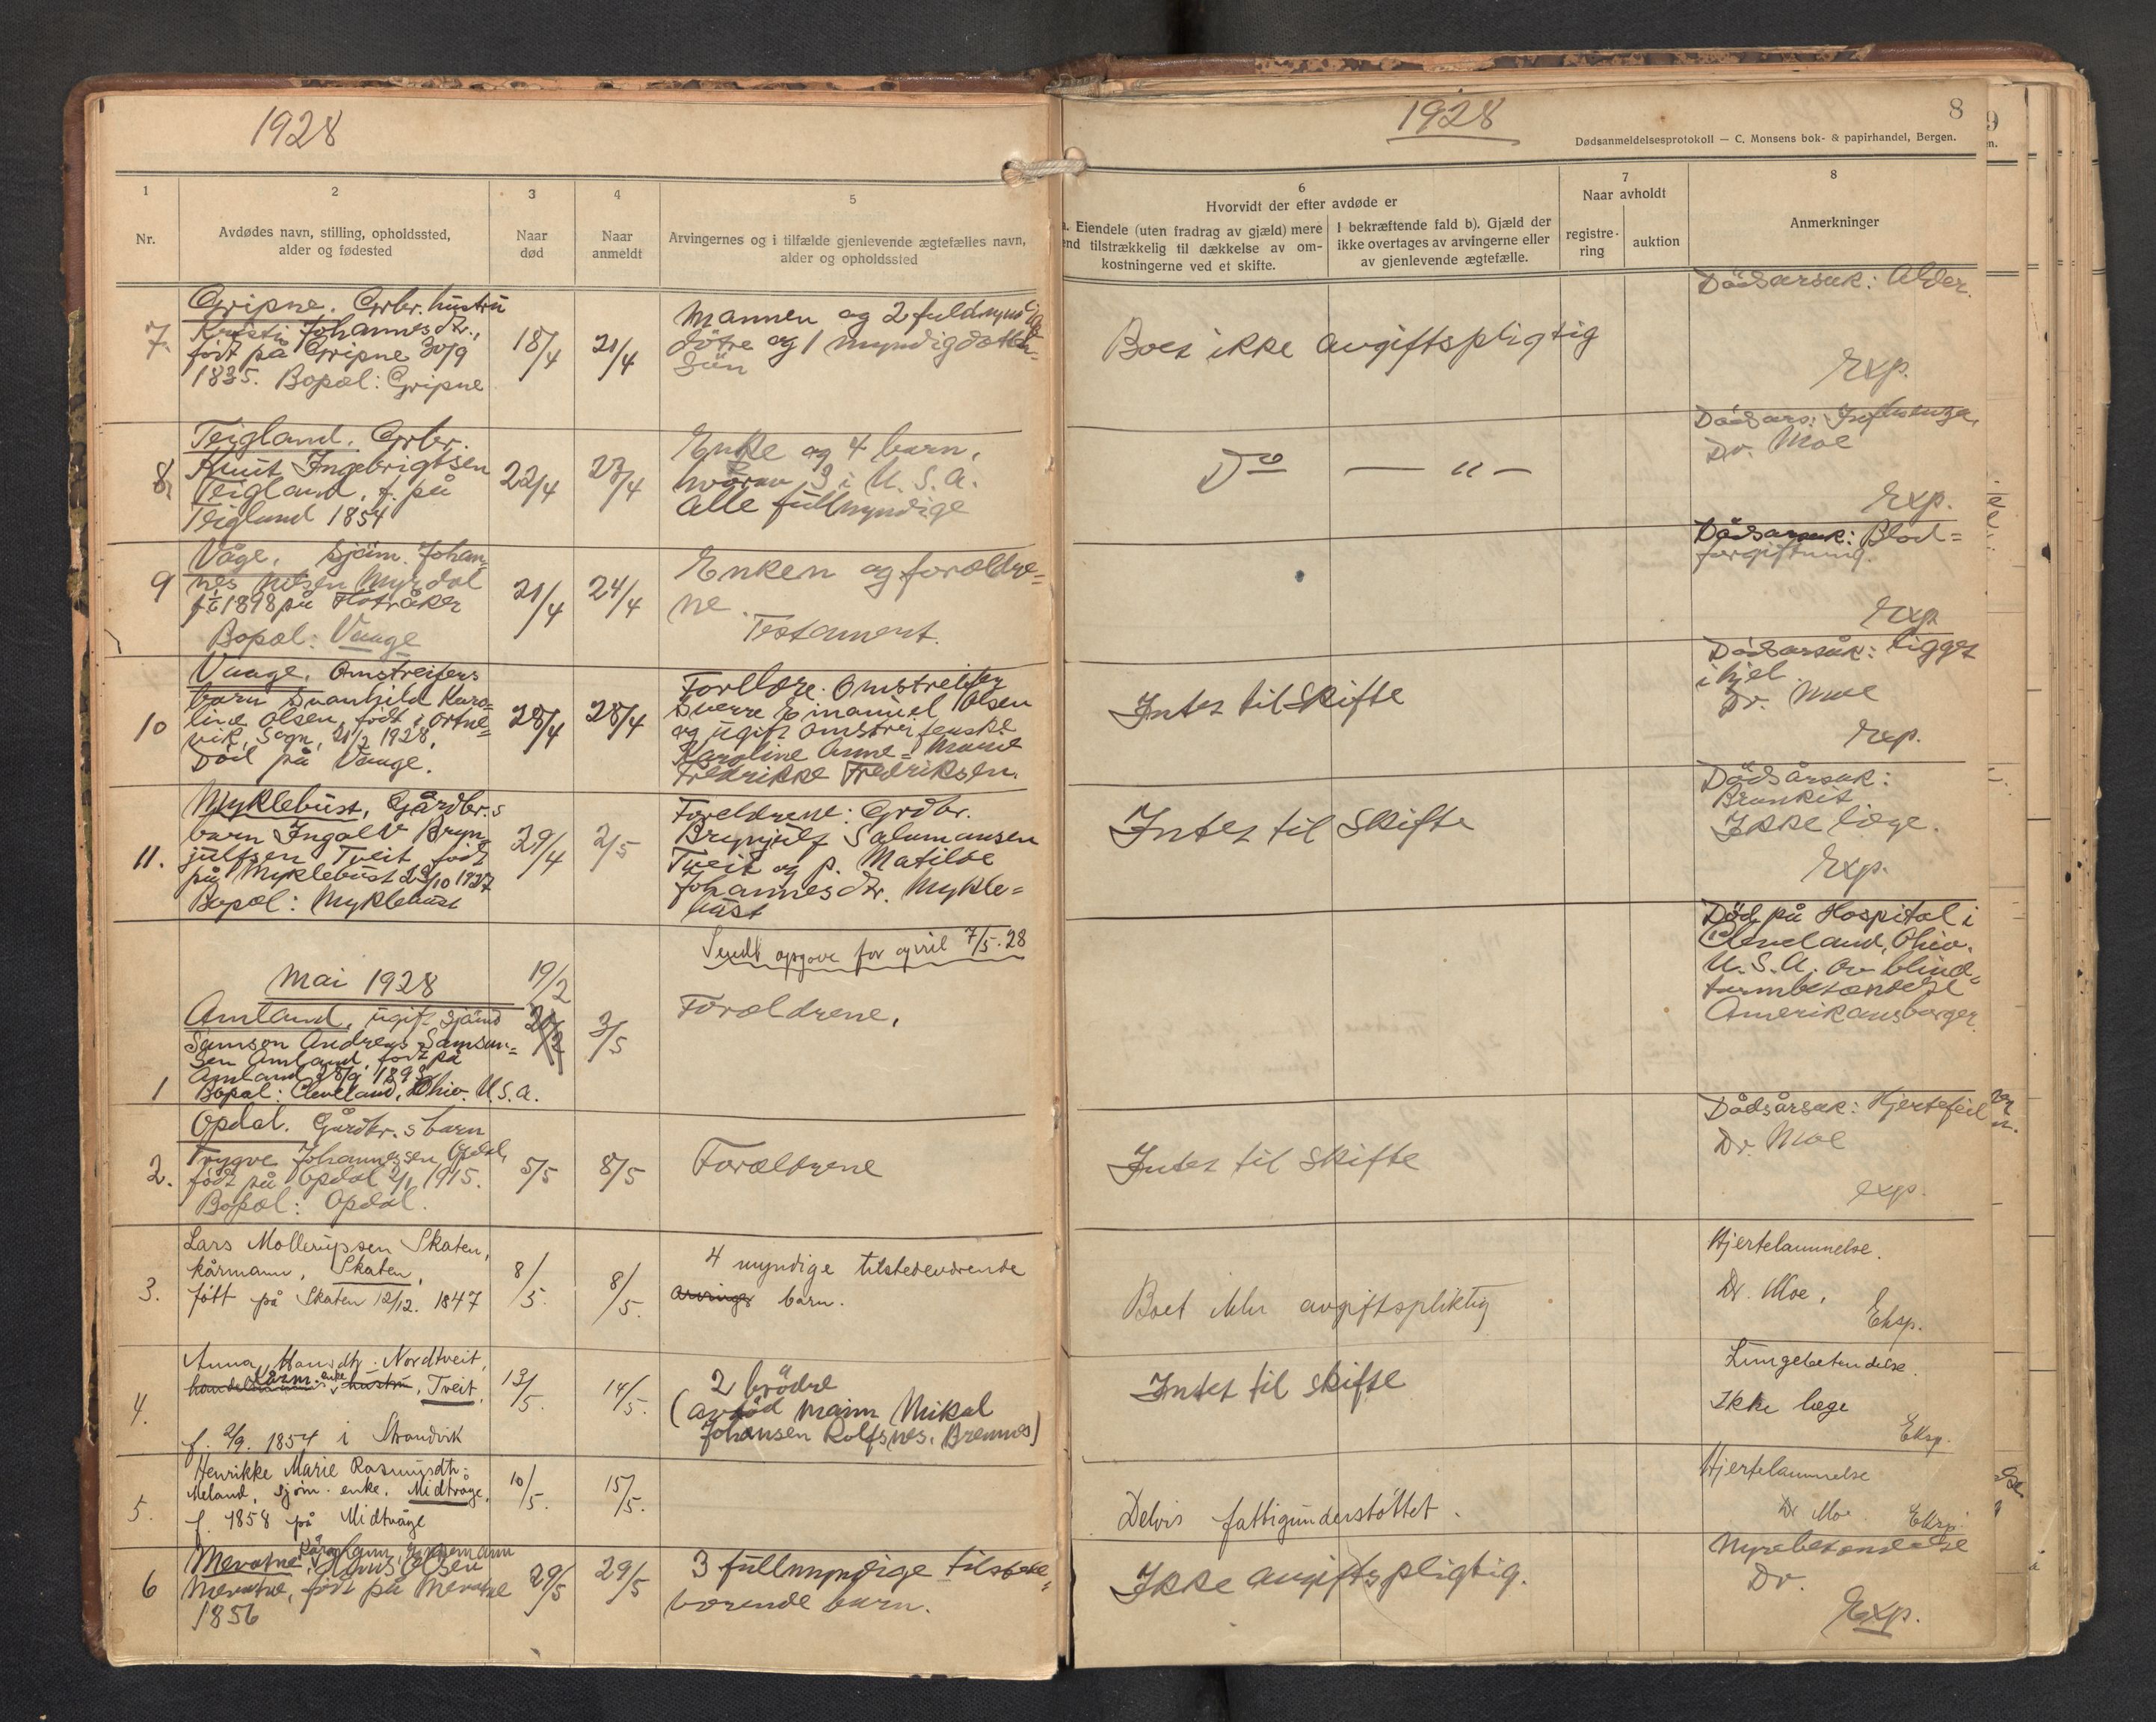 1928
1
2
3
4
5
Nr.
Avdødes navn, stilling, opholdssted,
alder og fødested
Naar
død
Naar
anmeldt
Arvingernes og i tilfælde gjenlevende ægtefælles navn,
alder og opholdssted
7.
Gripne. Grbr. hustru
Kristi Johannesdtr.,
født på Gripne 30/9
1835. Bopæl: Gripne
18/4
21/4
Mannen og 2 fuldmyndige
døtre og 1 myndig datter-
søn
8.
Teigland. Grbr.
Knut Ingebrigtsen
Teigland, f. på
Teigland 1854
22/4
23/4
Enke og 4 barn,
hvorav 3 i U.S.A.
Alle fullmyndige
9
Våge. Sjøm. Johan-
nes Nilsen Myrdal
1898 på Flotråker
Bopæl: Vaage
21/4
24/4
Enken og forældre-
ne.
Testament.
10
Vaage. Omstreifers
barn Svanhild Karo-
line Olsen, født i Ortne-
vik, Sogn, 21/2 1928.
Død på Vaage.
28/4
28/4
Foreldre. Omstreifer
Sverre Emanuel Olsen
og ugift omstreiferske
Karoline Anne-Marie
Fredrikke Fredriksen.
11.
Myklebust, Gårdbr.s
barn Ingolv Bryn-
julfsen Tveit, født
på Myklebust 23/10 1927
Bopæl: Myklebust
29/4
2/5
Foreldrene: Grdbr.
Brynjulf Salamonsen
Tveit og p. Matilde
Johannesdtr. Mykle-
bust
Sendt opgave for april 7/5.28
Mai 1928
1
Amland, ugift sjømd
Samson Andreas Samson-
sen Amland, født på
Amland 28/9 1893
Bopæl: Cleveland, Ohio. U.S.A.
19/2
3/5
Forældrene.
2.
Opdal. Gårdbr.s barn
Trygve Johannessen Opdal,
født på Opdal 2/1 1915.
Bopæl: Opdal.
5/5
8/5
Forældrene
3.
Lars Mollerupsen Skaten,
kårmann, Skaten,
født på Skaten 12/12. 1847
8/5.
8/5.
4 myndige tilstedeværende
arvinger barn.
4.
Anna Hansdtr. Nordtveit,
Kårm. enke
hustru, Tveit,
f. 2/9. 1854 i Strandvik
13/5.
14/5.
2 brødre
(avdød mann Mikal
Johansen Rolfsnes. Bremnes)
5.
Henrikke Marie Rasmusdtr.
Meland, sjøm. enke. Midtvåge,
f. 1858 på Midtvåge
10/5.
15/5.
6
Mevatne. Kårmann, enkemann
Hans Olsen
Mevatne, født på Mevatne
1856
29/5
29/5
3 fullmyndige tilstede-
værende barn.
1928
8
Dødsanmeldelsesprotokoll — C. Monsens bok- & papirhandel, Bergen.
6
Hvorvidt der efter avdøde er
a. Eiendele (uten fradrag av gjæld) mere
end tilstrækkelig til dækkelse av om-
kostningerne ved et skifte.
I bekræftende fald b). Gjæld der
ikke overtages av arvingerne eller
av gjenlevende ægtefælle.
7
Naar avholdt
registre-
ring
auktion
8
Anmerkninger
Boet ikke avgiftspligtig
Dødsårsak: Alder.
Exp.
Do — " —
Dødsårs: Influenza,
Dr. Moe
Exp.
Dødsårsak: Blod-
forgiftning.
Exp
Intet til Skifte
Dødsårsak: Ligget
ihjel.
Dr. Moe
Exp.
Intet til Skifte
Dødsårsak:
Bronkit
Ikke læge.
Exp.
Død på Hospital i
Cleveland, Ohio.
U.S.A. av blind-
tarmbetændelse
Amerikansborger
Intet til Skifte
Dødsårsak: Hjertefeil
Dr. Moe
exp.
Boet ikke avgiftspliktig
Hjertelammelse.
Dr. Moe.
Eksp.
Intet til skifte
Lungebetendelse.
Ikke læge
Eksp.
Delvis fattigunderstøttet.
Hjertelammelse
Dr Moe.
Eksp.
Ikke avgiftspligtig.
Nyrebetændelse
Dr.
Exp.